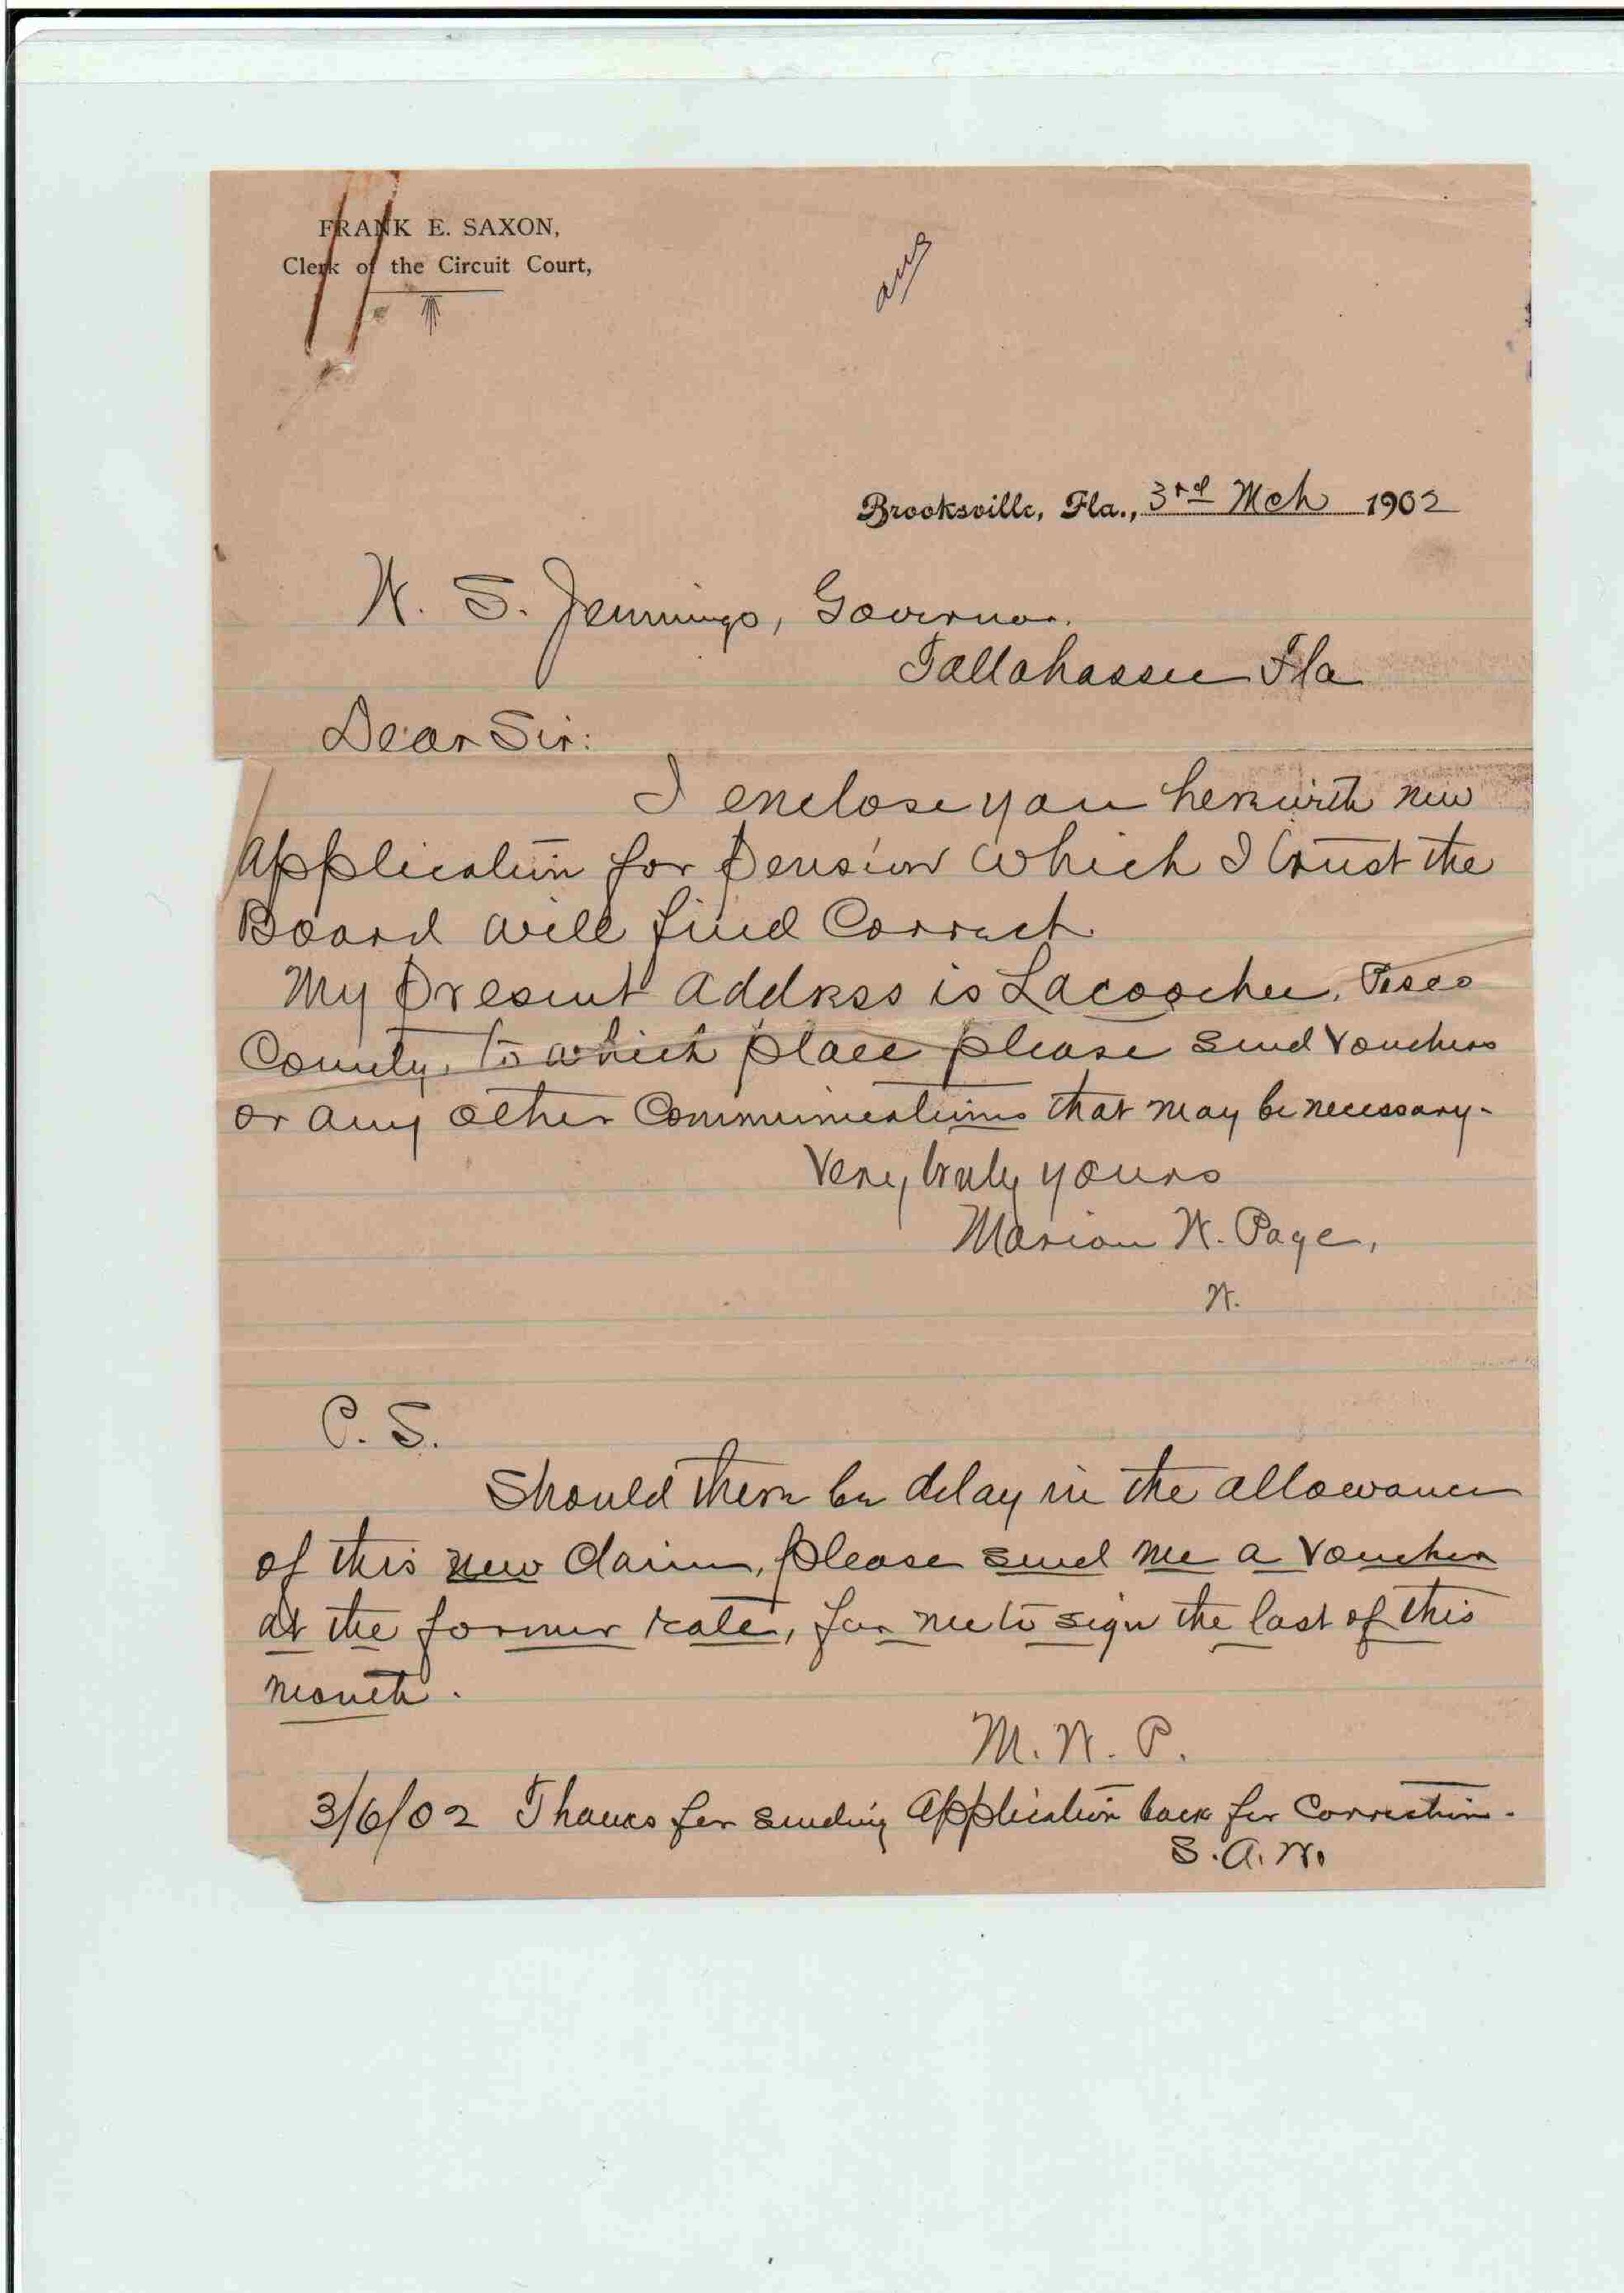 FRANK E. SAXON,
Clerk of the Circuit Court,
ans
Brooksville, Fla., 3rd Mch 1902
W. S. Jennings, Governor.
Tallahassee Fla
Dear Sir:
I enclose you herewith new
Application for Pension which I trust the
Board will find Correct.
My present address is Lacoochee, Pasco
County, to which place please send Vouchers
or any other Communications that may be necessary.
Very truly yours
Marion W. Page,
W.
P. S.
Should there be delay in the allowance
of this new claim, please send me a voucher
at the former rate, for me to sign the last of this
month.
M. W. P.
3/6/02 Thanks for sending Application back for Correction.
S. A. W.